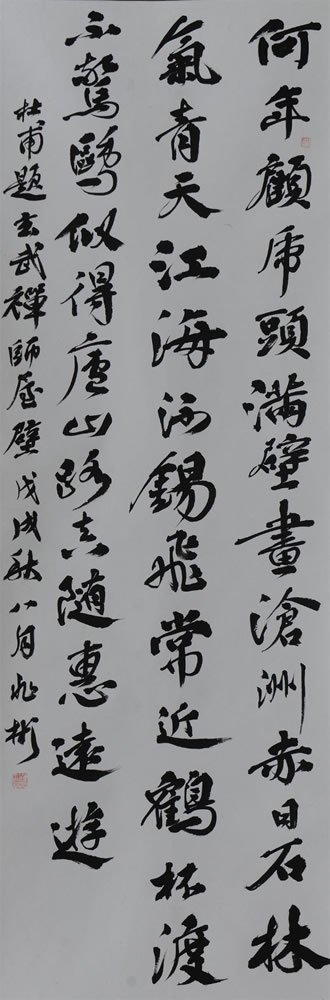 何年顧虎頭滿壁畫滄洲赤日石林
氣青天江海流錫飛常近鶴杯渡
不驚鷗似得廬山路真随惠遠遊
杜甫題玄武禪師屋壁戊戌秋八月兆彬